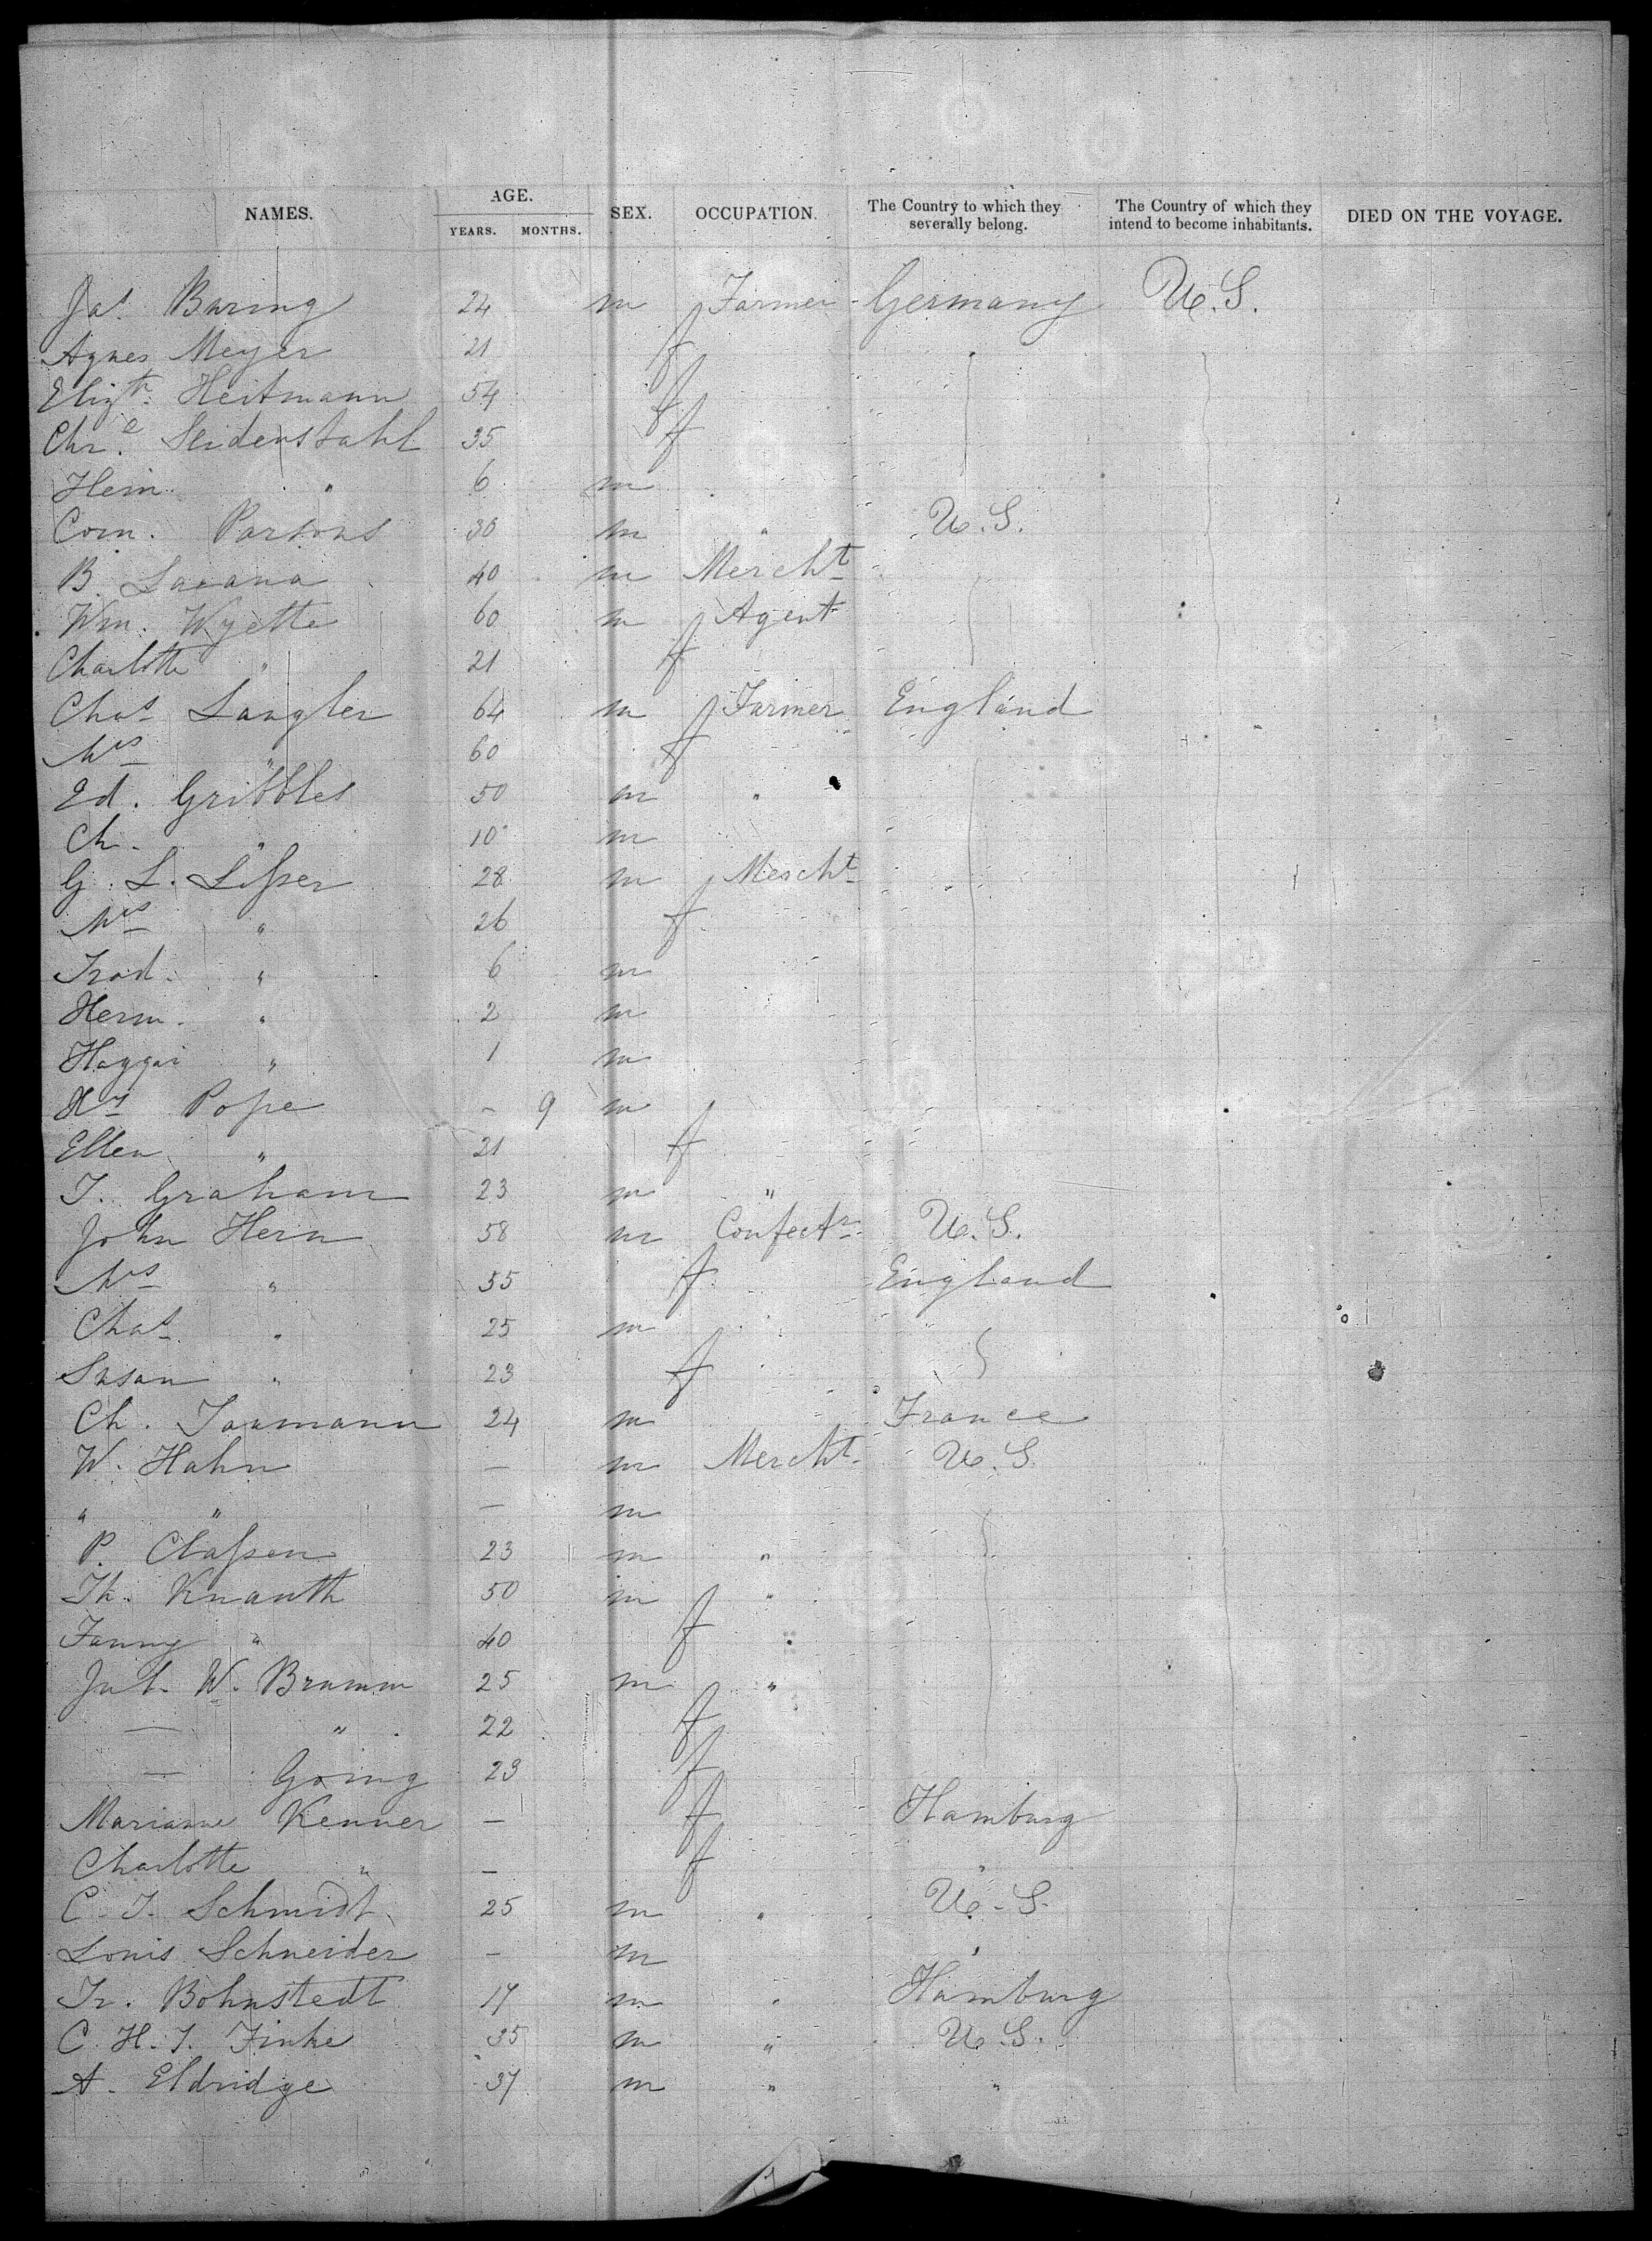 NAMES. AGE. SEX. OCCUPATION. The Country to which they severally belong. The Country of which they intend to become inhabitants. DIED ON THE VOYAGE.
YEARS. MONTHS.
Jas. Buring 24 m Farmer Germany U.S.
Agnes Meyer 21 f
Elizth. Heitmann 54 f
Chre. Seidenstahl 35 f
Hein " 6 m
Corn. Parsons 30 m " U.S.
B. 40 m Mercht
Wm. Wyette 60 m Agent
Charlotte " 21 f
Chas Langler 64 m Farmer England
Mrs " 60 f
Ed. Gribbles 50 m "
Ch. " 10 m
G. L. Lisser 28 m Mercht
Mrs " 26 f
" 6 m
Herm. " 2 m
Haggai " 1 m
Pope - 9 m
Ellen " 21 f
T. Graham 23 m "
John Hern 58 m Confectr U.S.
Mrs " 55 f England
Chas " 25 m
Susan " 23 f
Ch. 24 m France
W. Hahn — m Mercht U.S.
" " — m
P. Classen 23 m "
Th. Knauth 50 m "
Fanny " 40 f "
Jul. W. Brumm 25 m "
— " 22 f
— Going 23 f
Marianne Kenner — f Hamburg
Charlotte " — f "
C. F. Schmidt 25 m " U.S.
Louis Schneider — m "
Fr. Bohnstedt 17 m " Hamburg
C. H. F. Finke 35 m " U.S.
A. Eldridge 37 m " "